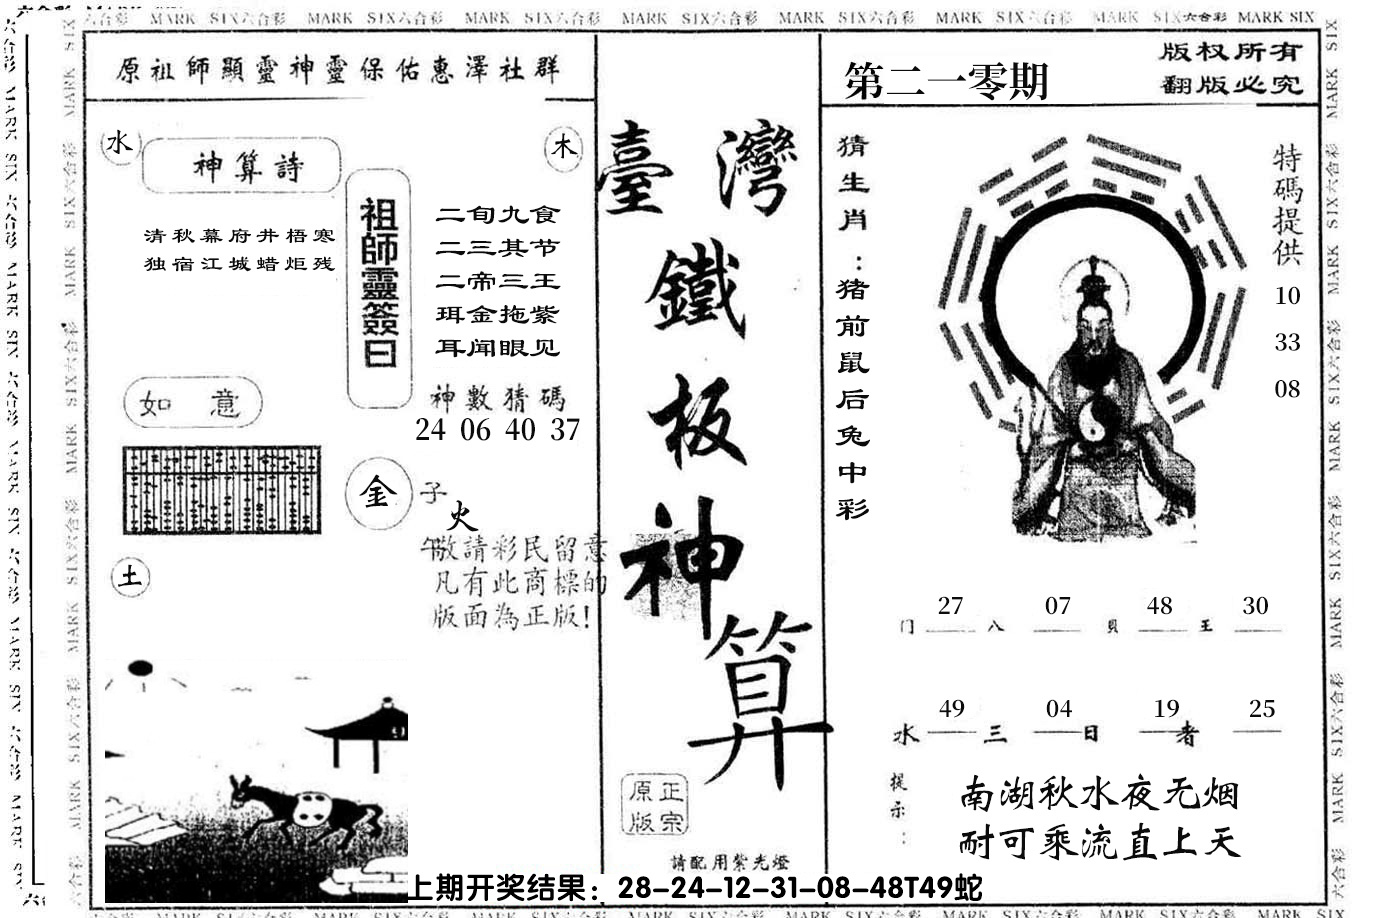 MARK SIX六合彩 MARK SIX六合彩 MARK SIX六合彩 MARK SIX六合彩 MARK SIX六合彩 MARK SIX六合彩 MARK SIX六合彩 MARK SIX
原祖師顯靈神靈保佑惠澤社群
水
木
神算詩
清秋幕府井梧寒
独宿江城蜡炬残
祖師靈簽曰
二旬九食
二三其节
二帝三王
珥金拖紫
耳闻眼见
神數猜碼
24 06 40 37
如意
金
子
火
午
敬請彩民留意
凡有此商標的
版面為正版!
土
臺灣
鐵
板
神
算
原正
版宗
請配用紫光燈
第二一零期
版权所有
翻版必究
猜生肖:猪前鼠后兔中彩
特碼提供
10
33
08
27 07 48 30
门 八 贝 王
49 04 19 25
水 三 日 者
提示:
南湖秋水夜无烟
耐可乘流直上天
上期开奖结果：28-24-12-31-08-48T49蛇